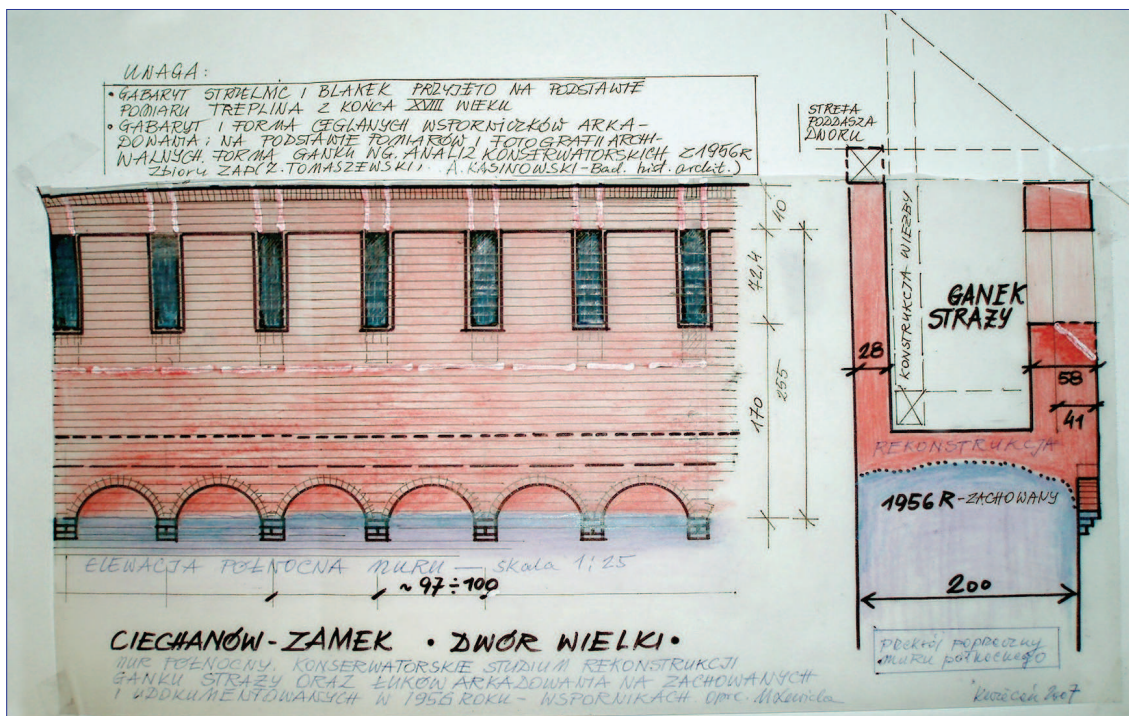 UWAGA:
• GABARYT STRZELNIC I BLANEK PRZYJĘTO NA PODSTAWIE
POMIARU TREPLINA Z KOŃCA XVIII WIEKU
• GABARYT I FORMA CEGLANYCH WSPORNICZKÓW ARKA-
DOWANIA: NA PODSTAWIE POMIARÓW I FOTOGRAFII ARCHI-
WALNYCH. FORMA GANKU WG. ANALIZ KONSERWATORSKICH Z 1956R
Zbioru ZAP (Z. TOMASZEWSKI, A. KASINOWSKI - Bad. hist. archit.)
STREFA
PODDASZA
DWORU
40
72,4
170
255
KONSTRUKCJA WIĘŹBY
GANEK
STRAŻY
28
58
41
REKONSTRUKCJA
1956 R - ZACHOWANY
200
ELEWACJA PÓŁNOCNA MURU — skala 1:25
~ 97 ÷ 100
CIECHANÓW - ZAMEK • DWÓR WIELKI •
MUR PÓŁNOCNY. KONSERWATORSKIE STUDIUM REKONSTRUKCJI
GANKU STRAŻY ORAZ ŁUKÓW ARKADOWANIA NA ZACHOWANYCH
I UDOKUMENTOWANYCH W 1956 ROKU - WSPORNIKACH oprc.
przekrój poprzeczny
muru północnego
kwiecień 2007